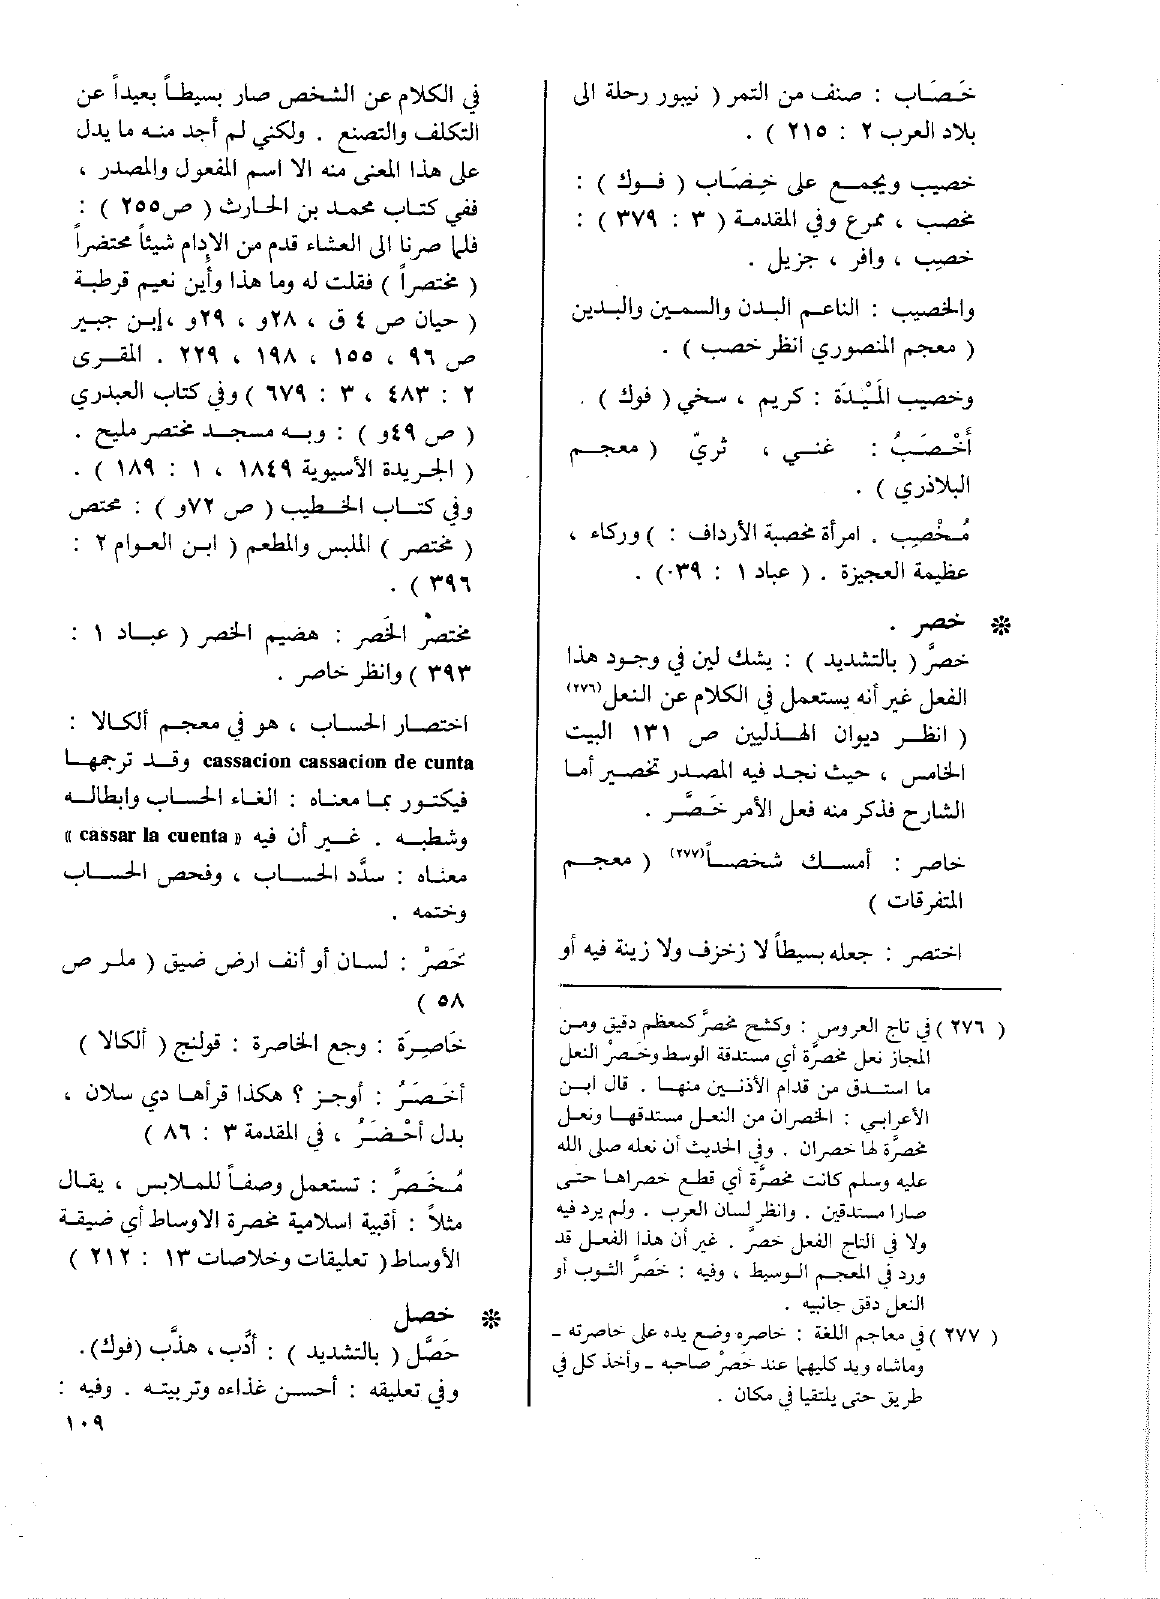 خَصَاب : صنف من التمر ( نيبور رحلة الى
بلاد العرب ٢ : ٢١٥ ) .
خصيب ويجمع على خِصَاب ( فوك ) :
مخصب ، ممرع وفي المقدمة ( ٣ : ٣٧٩ ) :
خصيب ، وافر ، جزيل .
والخصيب : الناعم البدن والسمين والبدين
( معجم المنصوري انظر خصب ) .
وخصيب المَيْدَة : كريم ، سخي ( فوك ) .
أَخْصَبُ : غني ، ثريّ ( معجم
البلاذري ) .
مُخْصِب . امرأة مخصبة الأرداف : ) وركاء ،
عظيمة العجيزة . ( عباد ١ : ٠٣٩) .
❊ خصر .
خصرَّ ( بالتشديد ) : يشك لين في وجود هذا
الفعل غير أنه يستعمل في الكلام عن النعل(٢٧٦)
( انظر ديوان الهذليين ص ١٣١ البيت
الخامس ، حيث نجد فيه المصدر تخصير أما
الشارح فذكر منه فعل الأمر خَصَّر .
خاصر : أمسك شخصاً(٢٧٧) ( معجم
المتفرقات )
اختصر : جعله بسيطاً لا زخزف ولا زينة فيه أو
( ٢٧٦ ) في تاج العروس : وكشح مخصرَّ كمعظم دقيق ومن
المجاز نعل مخصرَّة أي مستدقة الوسط وخَصرْ النعل
ما استدق من قدام الأذنين منها . قال ابن
الأعرابي : الخصران من النعل مستدقها ونعل
مخصرَّة لها خصران . وفي الحديث أن نعله صلى الله
عليه وسلم كانت مخصرَّة أي قطع خصراها حتى
صارا مستدقين . وانظر لسان العرب . ولم يرد فيه
ولا في التاج الفعل خصرَّ . غير أن هذا الفعل قد
ورد في المعجم الوسيط ، وفيه : خصرَّ الثوب أو
النعل دقق جانبيه .
( ٢٧٧ ) في معاجم اللغة : خاصره وضع يده على خاصرته ـ
وماشاه ويد كليهما عند خصرْ صاحبه ـ وأخذ كل في
طريق حتى يلتقيا في مكان .
في الكلام عن الشخص صار بسيطاً بعيداً عن
التكلف والتصنع . ولكني لم أجد منه ما يدل
على هذا المعنى منه الا اسم المفعول والمصدر ،
ففي كتاب محمد بن الحارث ( ص٢٥٥ ) :
فلما صرنا الى العشاء قدم من الإِدام شيئاً محتضراً
( مختصراً ) فقلت له وما هذا وأين نعيم قرطبة
( حيان ص ٤ ق ، ٢٨و ، ٢٩و ،إبن جبير
ص ٩٦ ، ١٥٥ ، ١٩٨ ، ٢٢٩ . المقري
٢ : ٤٨٣ ، ٣ : ٦٧٩ ) وفي كتاب العبدري
( ص ٤٩و ) : وبه مسجد مختصر مليح .
( الجريدة الأسيوية ١٨٤٩ ، ١ : ١٨٩ ) .
وفي كتاب الخطيب ( ص ٧٢و ) : محتص
( مختصر ) الملبس والمطعم ( ابن العوام ٢ :
٣٩٦ ) .
مختصرُ الخَصر : هضيم الخصر ( عباد ١ :
٣٩٣ ) وانظر خاصر .
اختصار الحساب ، هو في معجم ألكالا :
cassacion cassacion de cunta وقد ترجمها
فيكتور بما معناه : الغاء الحساب وابطاله
وشطبه . غير أن فيه « cassar la cuenta »
معناه : سدَّد الحساب ، وفحص الحساب
وختمه .
خَصرْ : لسان أو أنف ارض ضيق ( ملر ص
٥٨ )
خَاصِرَة : وجع الخاصرة : قولنج ( ألكالا )
أخَصَرُ : أوجز ؟ هكذا قرأها دي سلان ،
بدل أخْضَرُ ، في المقدمة ٣ : ٨٦ )
مُخَصرَّ : تستعمل وصفاً للملابس ، يقال
مثلاً : أقبية اسلامية مخصرة الاوساط أي ضيقة
الأوساط( تعليقات وخلاصات ١٣ : ٢١٢ )
❊ خصل
خَصَّل ( بالتشديد ) : أدَّب ، هذَّب (فوك).
وفي تعليقه : أحسن غذاءه وتربيته . وفيه :
١٠٩